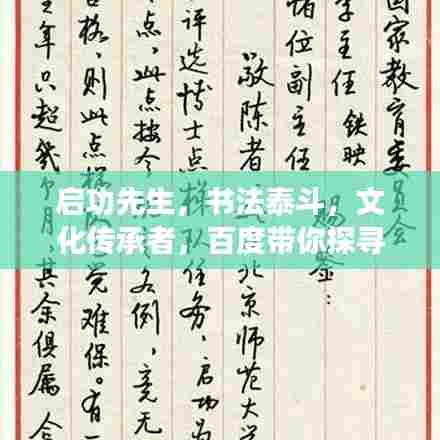 启功先生，书法泰斗，文
化传承者，百度带你探寻
国家教育委员会
李主任 铁映
诸位副主任
鉴：
敬陈者 北京师范大学
评选博士点梯队任务，启功为
点，此点按今 名例，竟无
合格，则此点 觉难保。有一
年只超几个月，其余俱属合